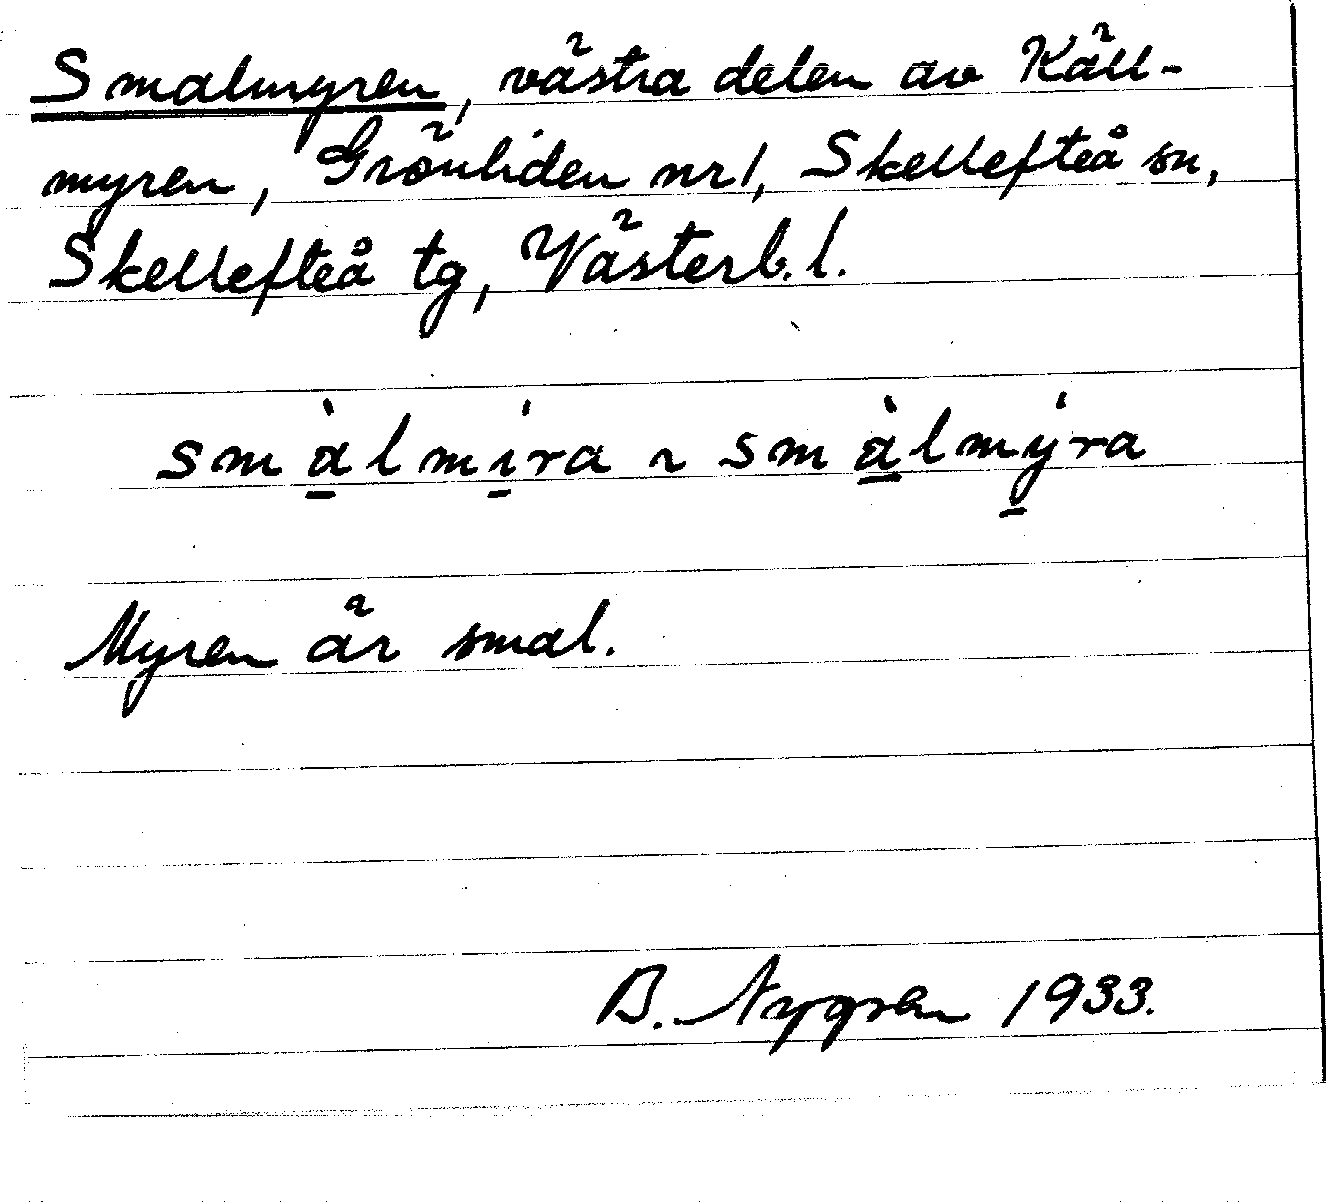 Smalmyren, västra delen av Käll-
myren, Grönliden nr 1, Skellefteå sn,
Skellefteå tg, Västerb. l.
smàlmíra ~ smàlmýra
Myren är smal.
B. Nygren 1933.